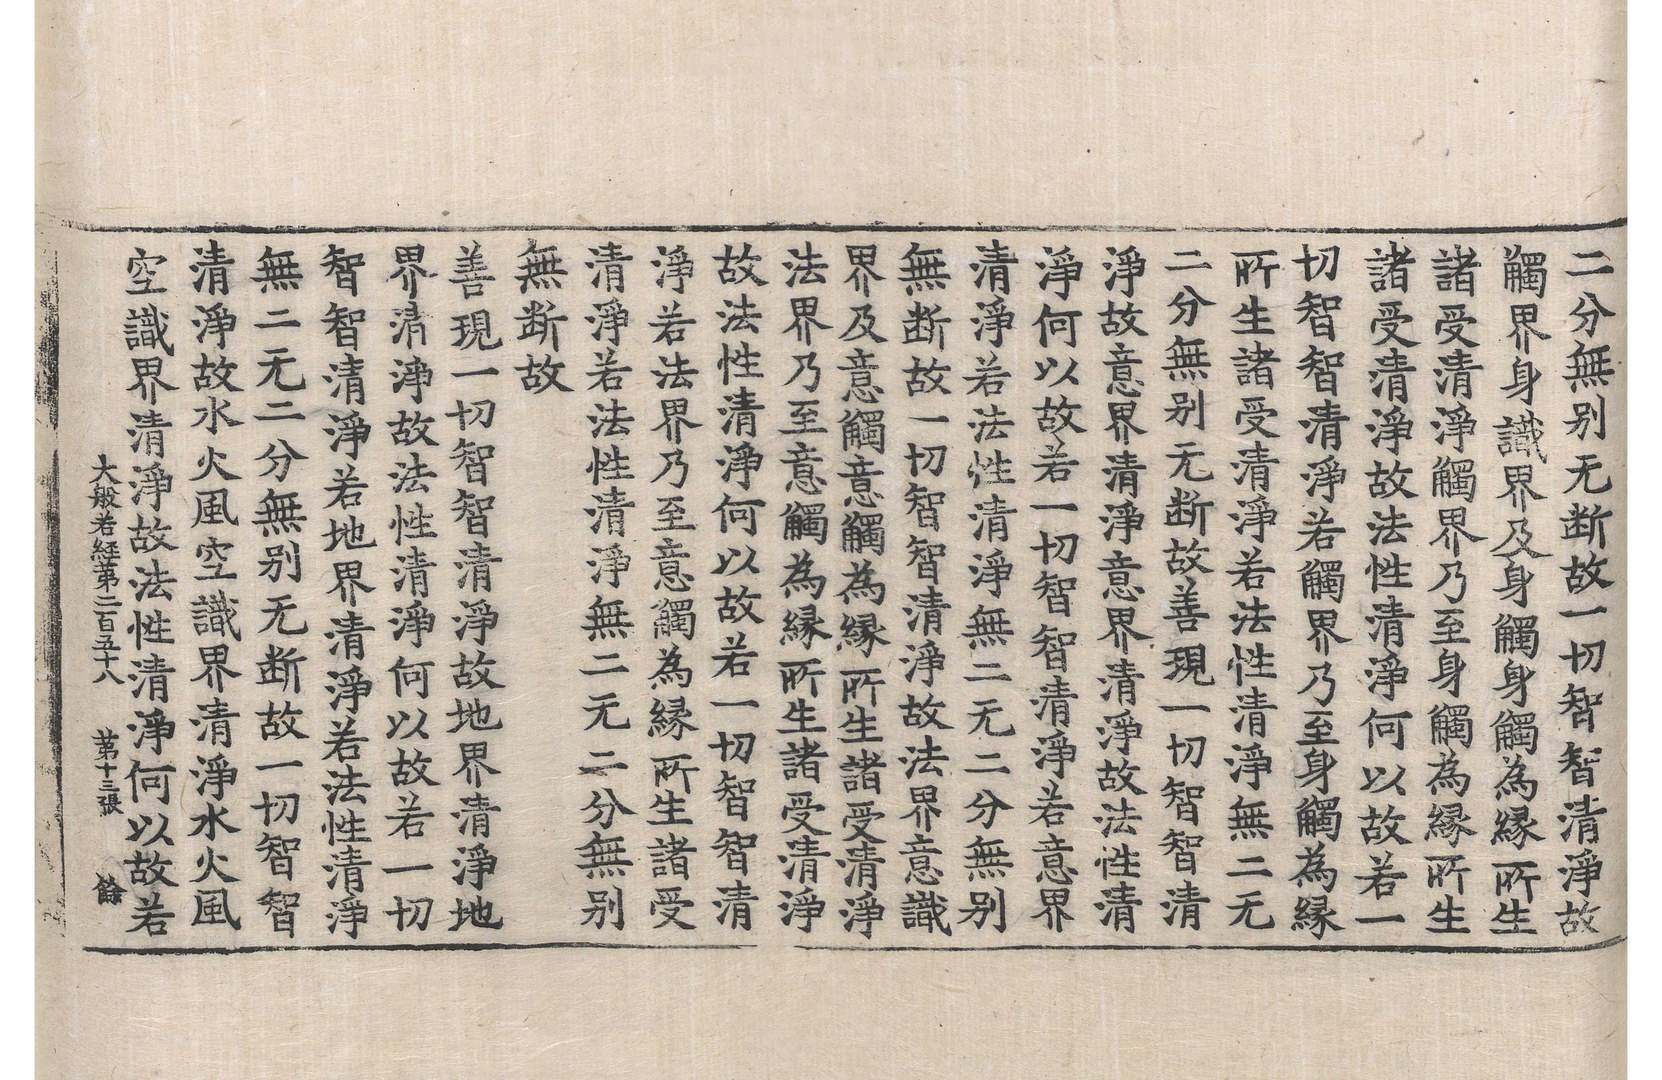 二分無别无断故一切智智清淨故
觸界身識界及身觸身觸為縁所生
諸受清淨觸界乃至身觸為縁所生
諸受清淨故法性清淨何以故若一
切智智清淨若觸界乃至身觸為縁
所生諸受清淨若法性清淨無二无
二分無别无断故善現一切智智清
淨故意界清淨意界清淨故法性清
淨何以故若一切智智清淨若意界
清淨若法性清淨無二无二分無别
無断故一切智智清淨故法界意識
界及意觸意觸為縁所生諸受清淨
法界乃至意觸為縁所生諸受清淨
故法性清淨何以故若一切智智清
淨若法界乃至意觸為縁所生諸受
清淨若法性清淨無二无二分無别
無断故
善現一切智智清淨故地界清淨地
界清淨故法性清淨何以故若一切
智智清淨若地界清淨若法性清淨
無二无二分無别无断故一切智智
清淨故水火風空識界清淨水火風
空識界清淨故法性清淨何以故若
大般若經第二百五十八 第十三張 餘